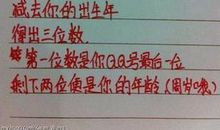 减去你的出生年
得出三位数.
第一位数是你QQ号最后一位
剩下两位便是你的年龄(周岁哦)